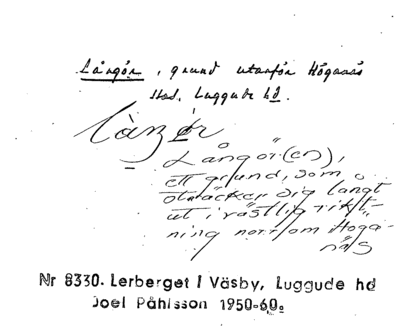 Långör, grund utanför Höganäs
stad. Luggude hd.
Långör(en),
ett grund, som
sträcker sig långt
ut i västlig rikt-
ning norr om Höga-
näs
Nr 8330. Lerberget i Väsby, Luggude hd
Joel Påhlsson 1950-60.